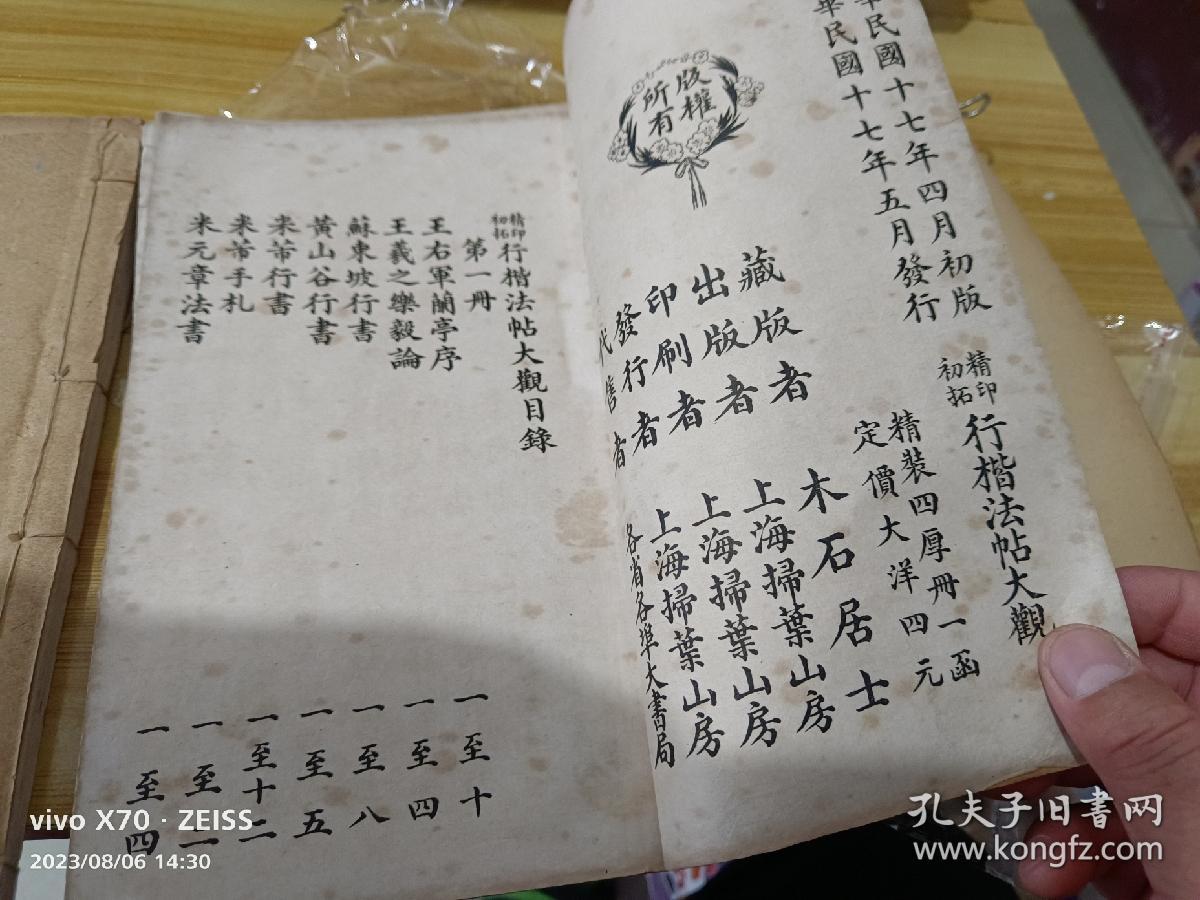 華民國十七年四月初版
華民國十七年五月發行
版權
所有
精印
初拓
行楷法帖大觀
精裝四厚册一函
定價大洋四元
藏版者 木石居士
出版者 上海掃葉山房
印刷者 上海掃葉山房
發行者 上海掃葉山房
代售者 各省各埠大書局
精印
初拓
行楷法帖大觀目錄
第一冊
王右軍蘭亭序 一至十
王羲之樂毅論 一至四
蘇東坡行書 一至八
黃山谷行書 一至五
米芾行書 一至十二
米芾手札 一至二
米元章法書 一至四
vivo X70 · ZEISS
2023/08/06 14:30
孔夫子旧書网
www.kongfz.com